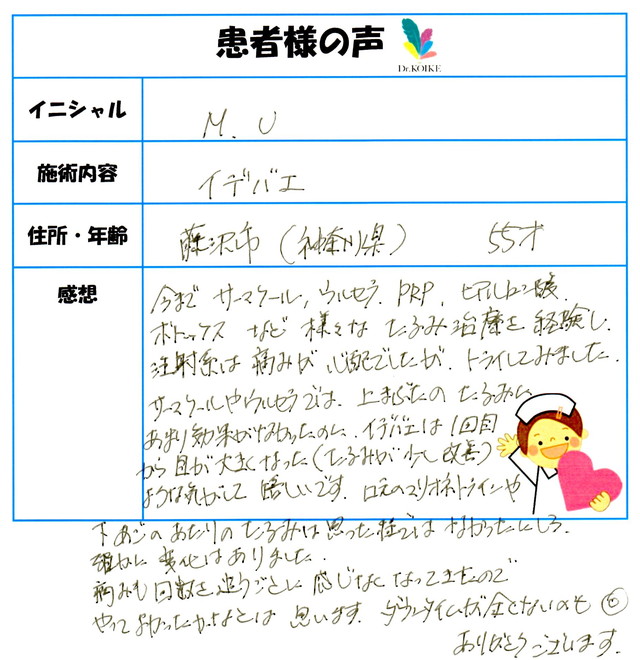 患者様の声
Dr.KOIKE
イニシャル M. U
施術内容 イデバエ
住所・年齢 藤沢市(神奈川県) 55才
感想
今まで サーマクール, ウルセラ. PRP. ヒアルロン酸.
ボトックス など 様々な たるみ治療を 経験し.
注射系は 痛みが 心配でしたが. トライしてみました.
サーマクールやウルセラでは. 上まぶたの たるみに
あまり効果がなかったのに. イデバエは 1回目
から 目が 大きくなった(たるみが 少し 改善)
ような気がして 嬉しいです. 口元のマリオネットラインや
下あごの あたりの たるみは 思った程では なかったにしろ.
確かに 変化は ありました.
痛みも 回数を 追うごとに 感じなくなってきたので
やって よかったかなとは 思います. ダウンタイムが 全くないのも ◎
ありがとうございます.